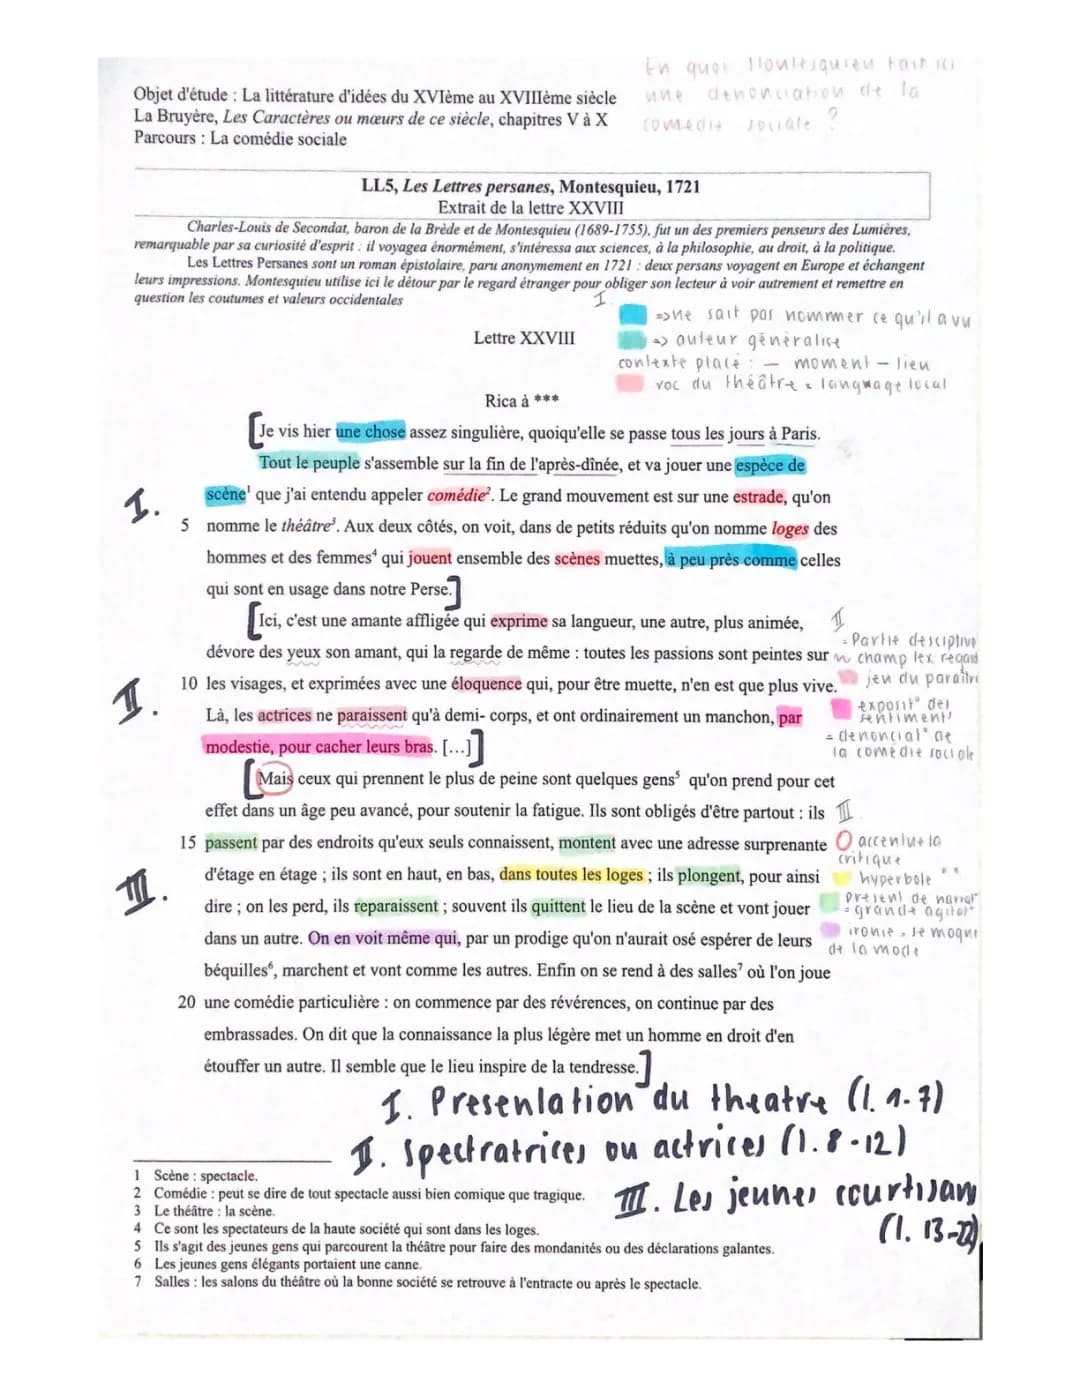 En quoi Montesquieu fait ici
une dénonciation de la
comédie sociale ?
Objet d'étude : La littérature d'idées du XVIème au XVIIIème siècle
La Bruyère, Les Caractères ou mœurs de ce siècle, chapitres V à X
Parcours : La comédie sociale
LL5, Les Lettres persanes, Montesquieu, 1721
Extrait de la lettre XXVIII
Charles-Louis de Secondat, baron de la Brède et de Montesquieu (1689-1755), fut un des premiers penseurs des Lumières,
remarquable par sa curiosité d'esprit : il voyagea énormément, s'intéressa aux sciences, à la philosophie, au droit, à la politique.
Les Lettres Persanes sont un roman épistolaire, paru anonymement en 1721 : deux persans voyagent en Europe et échangent
leurs impressions. Montesquieu utilise ici le détour par le regard étranger pour obliger son lecteur à voir autrement et remettre en
question les coutumes et valeurs occidentales
I.
=> ne sait pas nommmer ce qu'il a vu
Lettre XXVIII
=> auteur généralise
contexte place : — moment — lieu
voc du théâtre = languwage local
Rica à ***
[Je vis hier une chose assez singulière, quoiqu'elle se passe tous les jours à Paris.
Tout le peuple s'assemble sur la fin de l'après-dînée, et va jouer une espèce de
I. scène¹ que j'ai entendu appeler comédie². Le grand mouvement est sur une estrade, qu'on
5 nomme le théâtre³. Aux deux côtés, on voit, dans de petits réduits qu'on nomme loges des
hommes et des femmes⁴ qui jouent ensemble des scènes muettes, à peu près comme celles
qui sont en usage dans notre Perse.]
[Ici, c'est une amante affligée qui exprime sa langueur, une autre, plus animée,
II
= Partie desciptive
dévore des yeux son amant, qui la regarde de même : toutes les passions sont peintes sur
champ lex regard
II. 10 les visages, et exprimées avec une éloquence qui, pour être muette, n'en est que plus vive.
jeu du paraître
Là, les actrices ne paraissent qu'à demi- corps, et ont ordinairement un manchon, par
exposit° des
sentiments
modestie, pour cacher leurs bras. [...]]
= denonciat° de
la comédie sociale
[Mais ceux qui prennent le plus de peine sont quelques gens⁵ qu'on prend pour cet
effet dans un âge peu avancé, pour soutenir la fatigue. Ils sont obligés d'être partout : ils
III
15 passent par des endroits qu'eux seuls connaissent, montent avec une adresse surprenante
accentue la
critique
III. d'étage en étage ; ils sont en haut, en bas, dans toutes les loges ; ils plongent, pour ainsi
hyperbole
dire ; on les perd, ils reparaissent ; souvent ils quittent le lieu de la scène et vont jouer
Présent de narrat°
= grande agilot°
dans un autre. On en voit même qui, par un prodige qu'on n'aurait osé espérer de leurs
ironie = se moque
de la mode
béquilles⁶, marchent et vont comme les autres. Enfin on se rend à des salles⁷ où l'on joue
20 une comédie particulière : on commence par des révérences, on continue par des
embrassades. On dit que la connaissance la plus légère met un homme en droit d'en
étouffer un autre. Il semble que le lieu inspire de la tendresse.]
I. Presentation du theatre (l. 1-7)
II. Spectratrices ou actrices (l. 8-12)
III. Les jeunes courtisans
(l. 13-22)
1 Scène : spectacle.
2 Comédie : peut se dire de tout spectacle aussi bien comique que tragique.
3 Le théâtre : la scène.
4 Ce sont les spectateurs de la haute société qui sont dans les loges.
5 Ils s'agit des jeunes gens qui parcourent la théâtre pour faire des mondanités ou des déclarations galantes.
6 Les jeunes gens élégants portaient une canne.
7 Salles : les salons du théâtre où la bonne société se retrouve à l'entracte ou après le spectacle.